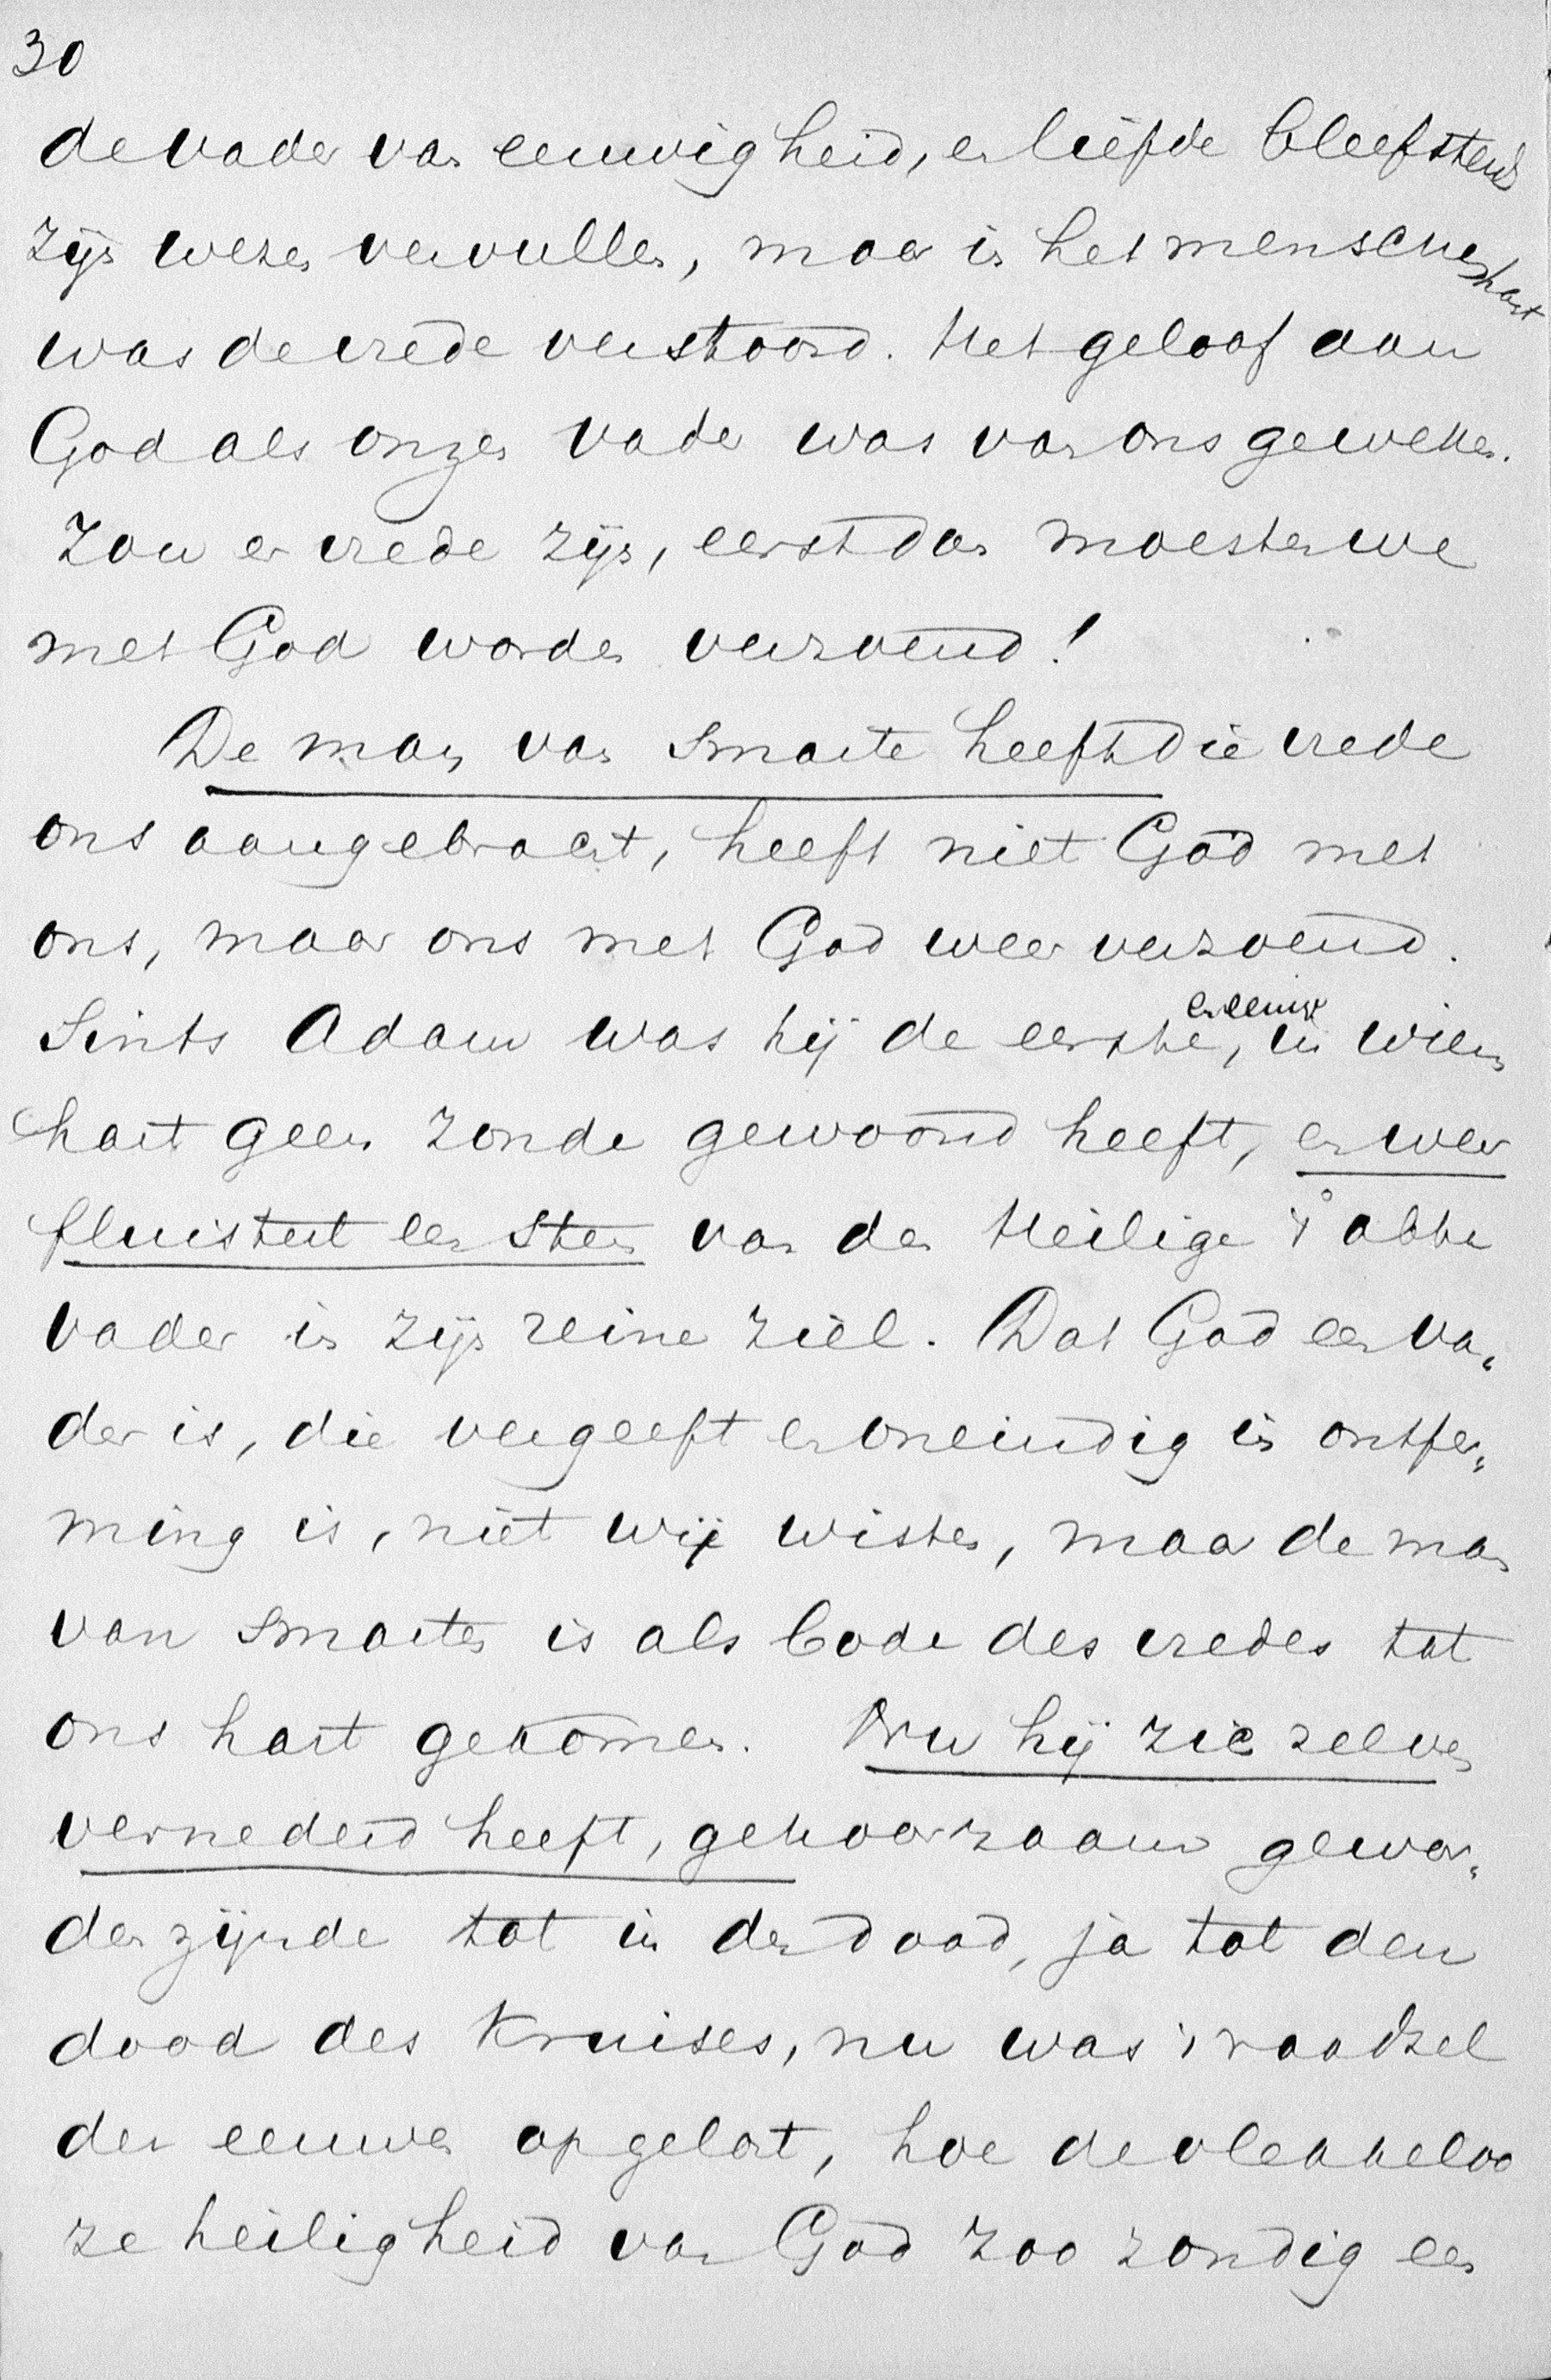 30
de vader van eeuwigheid, en liefde bleef steeds
zijn wezen vervullen, maar in het menschenhart
was de vrede verstoord. Het geloof aan
God als onzen vader was van ons geweken.
Zou er vrede zijn, eerst dan moesten we
met God worden verzoend!
De man van smarte heeft die vrede
ons aangebracht, heeft niet God met
ons, maar ons met God weer verzoend.
Sints Adam was hij de eerste, en eenige, in wiens
hart geen zonde gewoond heeft, en weer
fluistert een stem van den Heilige 't abba
vader in zijn reine ziel. Dat God een va„
der is, die vergeeft en oneindig in ontfer„
ming is, niet wij wisten, maar de man
van smarten is als bode des vredes tot
ons hart gekomen. Nu hij zich zelven
vernederd heeft, gehoorzaam gewor„
den zijnde tot in den dood, ja tot den
dood des Kruises, nu was 't raadsel
der eeuwen opgelost, hoe de vlekkeloo
ze heiligheid van God zoo zondig een